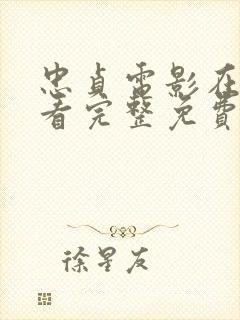 忠贞雷影在
看完整免费
徐星友